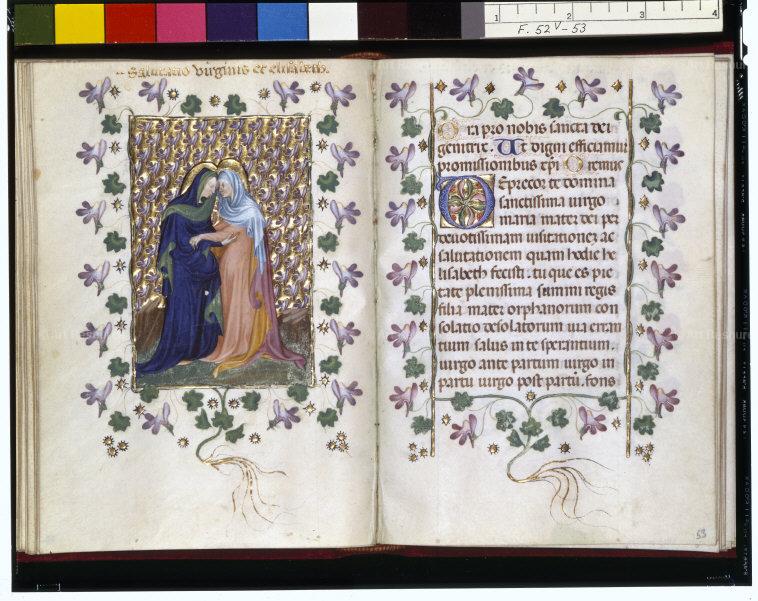 1 2 3 4
F. 52V-53
Salutatio virginis et elisabeth.
Ora pro nobis sancta dei
genitrix. Ut digni efficiamur
promissionibus xpi Oremus
Deprecor te domina
sanctissima uirgo
maria mater dei per
deuotissimam uisitationez ac
salutationem quam hodie he
lisabeth fecisti. tu que es pie
tate plenissima summi regis
filia mater orphanorum con
solatio desolatorum uia erran
tium salus in te sperantium.
uirgo ante partum uirgo in
partu uirgo post partū. fons
53